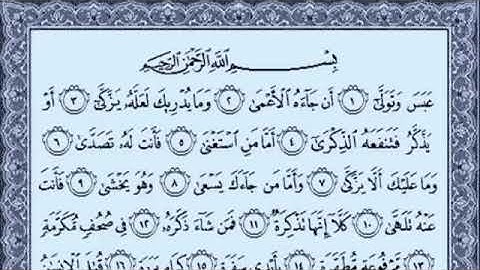 بِسْمِ اللَّهِ الرَّحْمَٰنِ الرَّحِيمِ
عَبَسَ وَتَوَلَّىٰٓ ١ أَن جَآءَهُ ٱلْأَعْمَىٰ ٢ وَمَا يُدْرِيكَ لَعَلَّهُۥ يَزَّكَّىٰٓ ٣ أَوْ
يَذَّكَّرُ فَتَنفَعَهُ ٱلذِّكْرَىٰٓ ٤ أَمَّا مَنِ ٱسْتَغْنَىٰ ٥ فَأَنتَ لَهُۥ تَصَدَّىٰ ٦
وَمَا عَلَيْكَ أَلَّا يَزَّكَّىٰ ٧ وَأَمَّا مَن جَآءَكَ يَسْعَىٰ ٨ وَهُوَ يَخْشَىٰ ٩ فَأَنتَ
عَنْهُ تَلَهَّىٰ ١٠ كَلَّآ إِنَّهَا تَذْكِرَةٌ ١١ فَمَن شَآءَ ذَكَرَهُۥ ١٢ فِى صُحُفٍ مُّكَرَّمَةٍ
١٣ مَّرْفُوعَةٍ مُّطَهَّرَةٍۭ ١٤ بِأَيْدِى سَفَرَةٍ ١٥ كِرَامٍۭ بَرَرَةٍ ١٦ قُتِلَ ٱلْإِنسَٰنُ